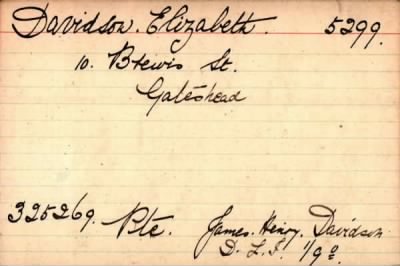 Davidson. Elizabeth. 5299.
10. Brewis St.
Gateshead
325269. Pte. James. Henry. Davidson
D. L. I. 1/9º